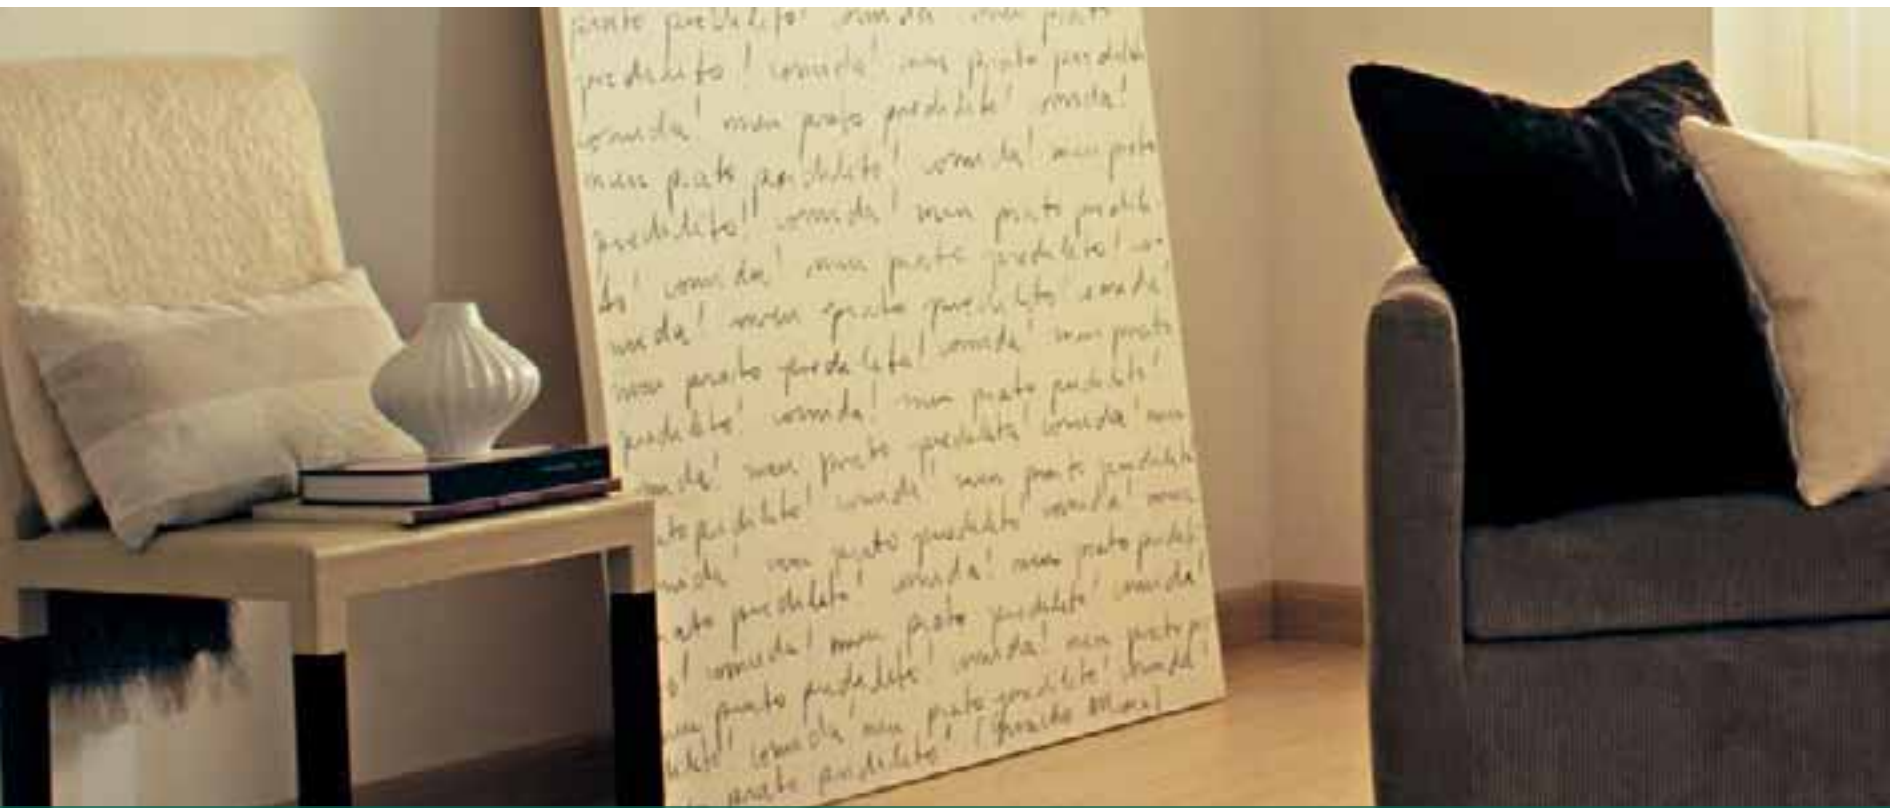 prato predileto! comida meu prato
predileto! comida! meu prato predileto
comida! meu prato predileto! comida!
meu prato predileto! comida! meu prato
predileto! comida! meu prato predile-
to! comida! meu prato predileto! co-
mida! meu prato predileto! comida!
meu prato predileto! comida! meu prato
predileto! comida! meu prato predileto!
mida! meu prato predileto! comida! meu
to predileto! comida! meu prato predileto
mida! meu prato predileto! comida! meu
ato predileto! comida! meu prato predile
o! comida! meu prato predileto! comida!
meu prato predileto! comida! meu prato pr
dileto! comida! meu prato predileto! comida!
prato predileto!